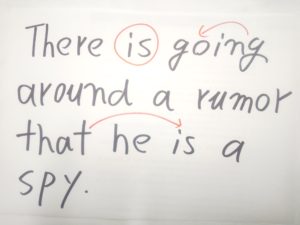 There is going
around a rumor
that he is a
spy.